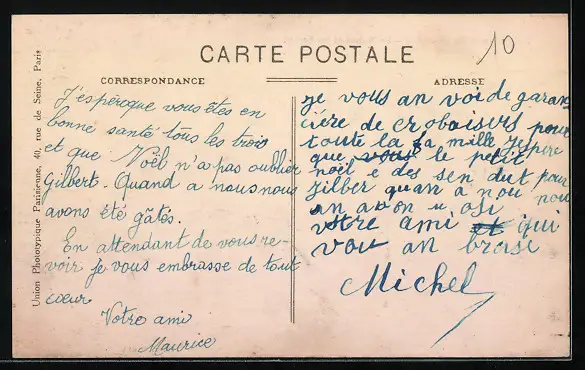 10
CARTE POSTALE
CORRESPONDANCE
ADRESSE
Union Phototypique Parisienne, 40, rue de Seine, Paris
J'espère que vous êtes en
bonne santé tous les trois
et que Noël n'a pas oublié
Gilbert. Quand a nous nous
avons été gâtés.
En attendant de vous re-
voir je vous embrasse de tout
cœur
Votre ami
Maurice
je vous an voi de garan
cière de cro baisers pour
toute la fa mille jespère
que vous le petit
noël e des sen dut pour
jilber quan a nou nou
an avon u osi
votre ami et qui
vou an brase
Michel